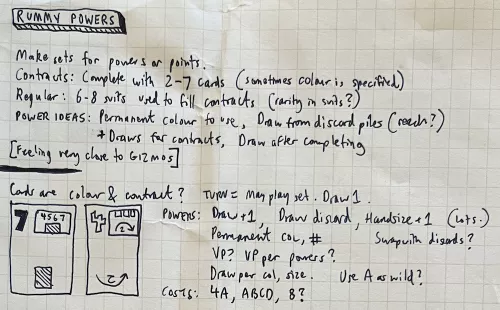 RUMMY POWERS
Make sets for powers or points.
Contracts: Complete with 2-7 cards (sometimes colour is specified)
Regular: 6-8 suits used to fill contracts (rarity in suits?)
POWER IDEAS: Permanent colour to use, Draw from discard piles (reach?)
+ Draws for contracts, Draw after completing
[Feeling very close to GIZMOS]
Cards are colour & contract? TURN = May play set. Draw 1.
7 4567
2
2
POWERS: Draw +1, Draw discard, Handsize +1 (Lots.)
Permanent col, # Swap with discards?
VP? VP per powers?
Draw per col, size. Use A as wild?
COSTS: 4A, ABCD, 8?